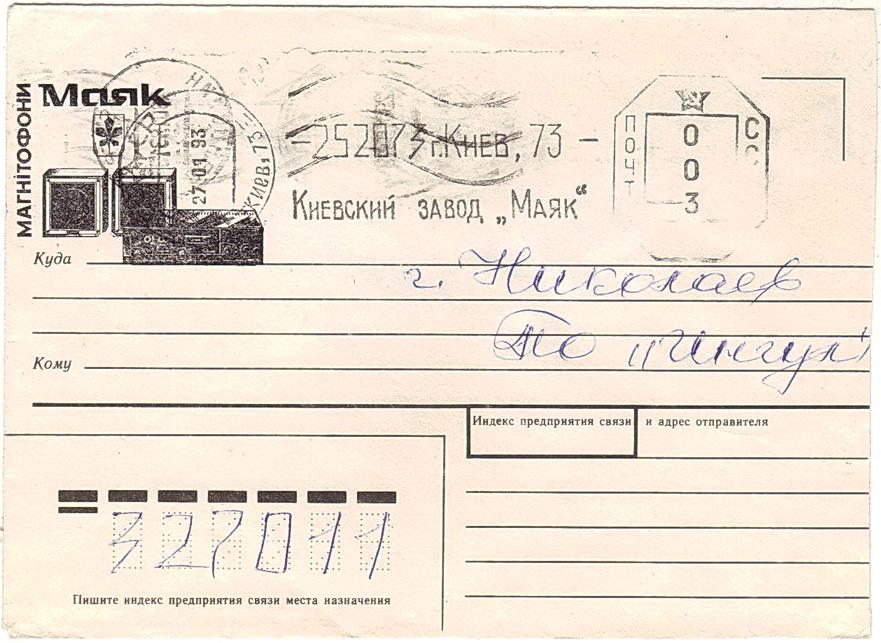 Маяк
МАГНІТОФОНИ
27·01 93
КИЕВ, 73
—252073 г.Киев, 73 —
Киевский завод „Маяк“
ПОЧТ
СС
0
0
3
Куда
г. Николаев
ПО „Чингул“
Кому
Индекс предприятия связи и адрес отправителя
327011
Пишите индекс предприятия связи места назначения